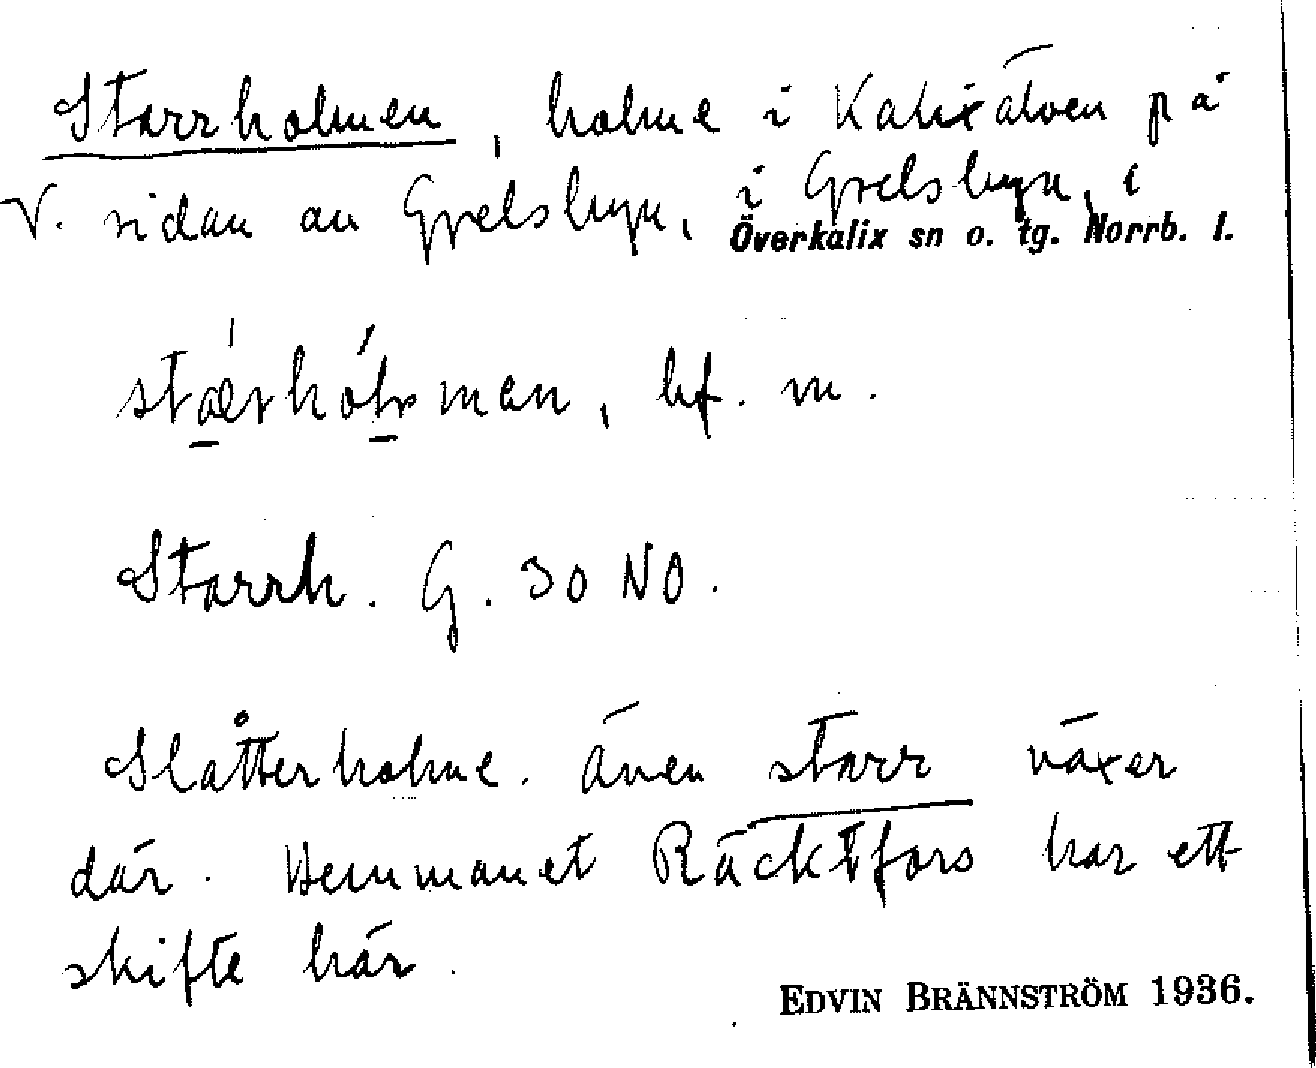 Starrholmen, holme i Kalixälven på
V. sidan av Grelsbyn, i Grelsbyn, i
Överkalix sn o. tg. Norrb. l.
bf. m.
Starrh. G. 30 NO.
Slåtterholme. Även starr växer
där. Hemmanet Räcktfors har ett
skifte här.
EDVIN BRÄNNSTRÖM 1936.